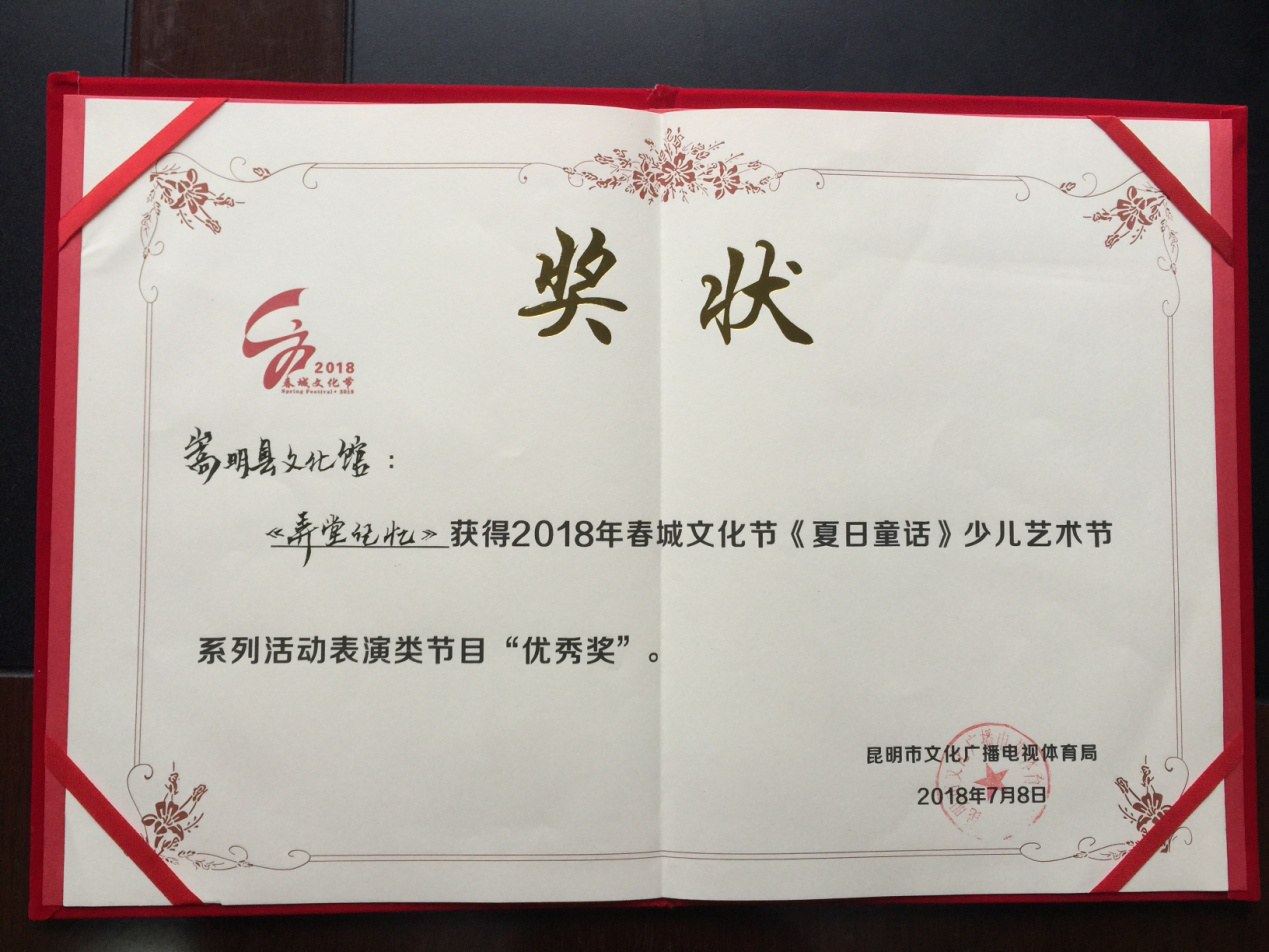 奖状
2018
春城文化节
Spring Festival 2018
嵩明县文化馆：
《弄堂记忆》获得2018年春城文化节《夏日童话》少儿艺术节
系列活动表演类节目“优秀奖”。
昆明市文化广播电视体育局
2018年7月8日